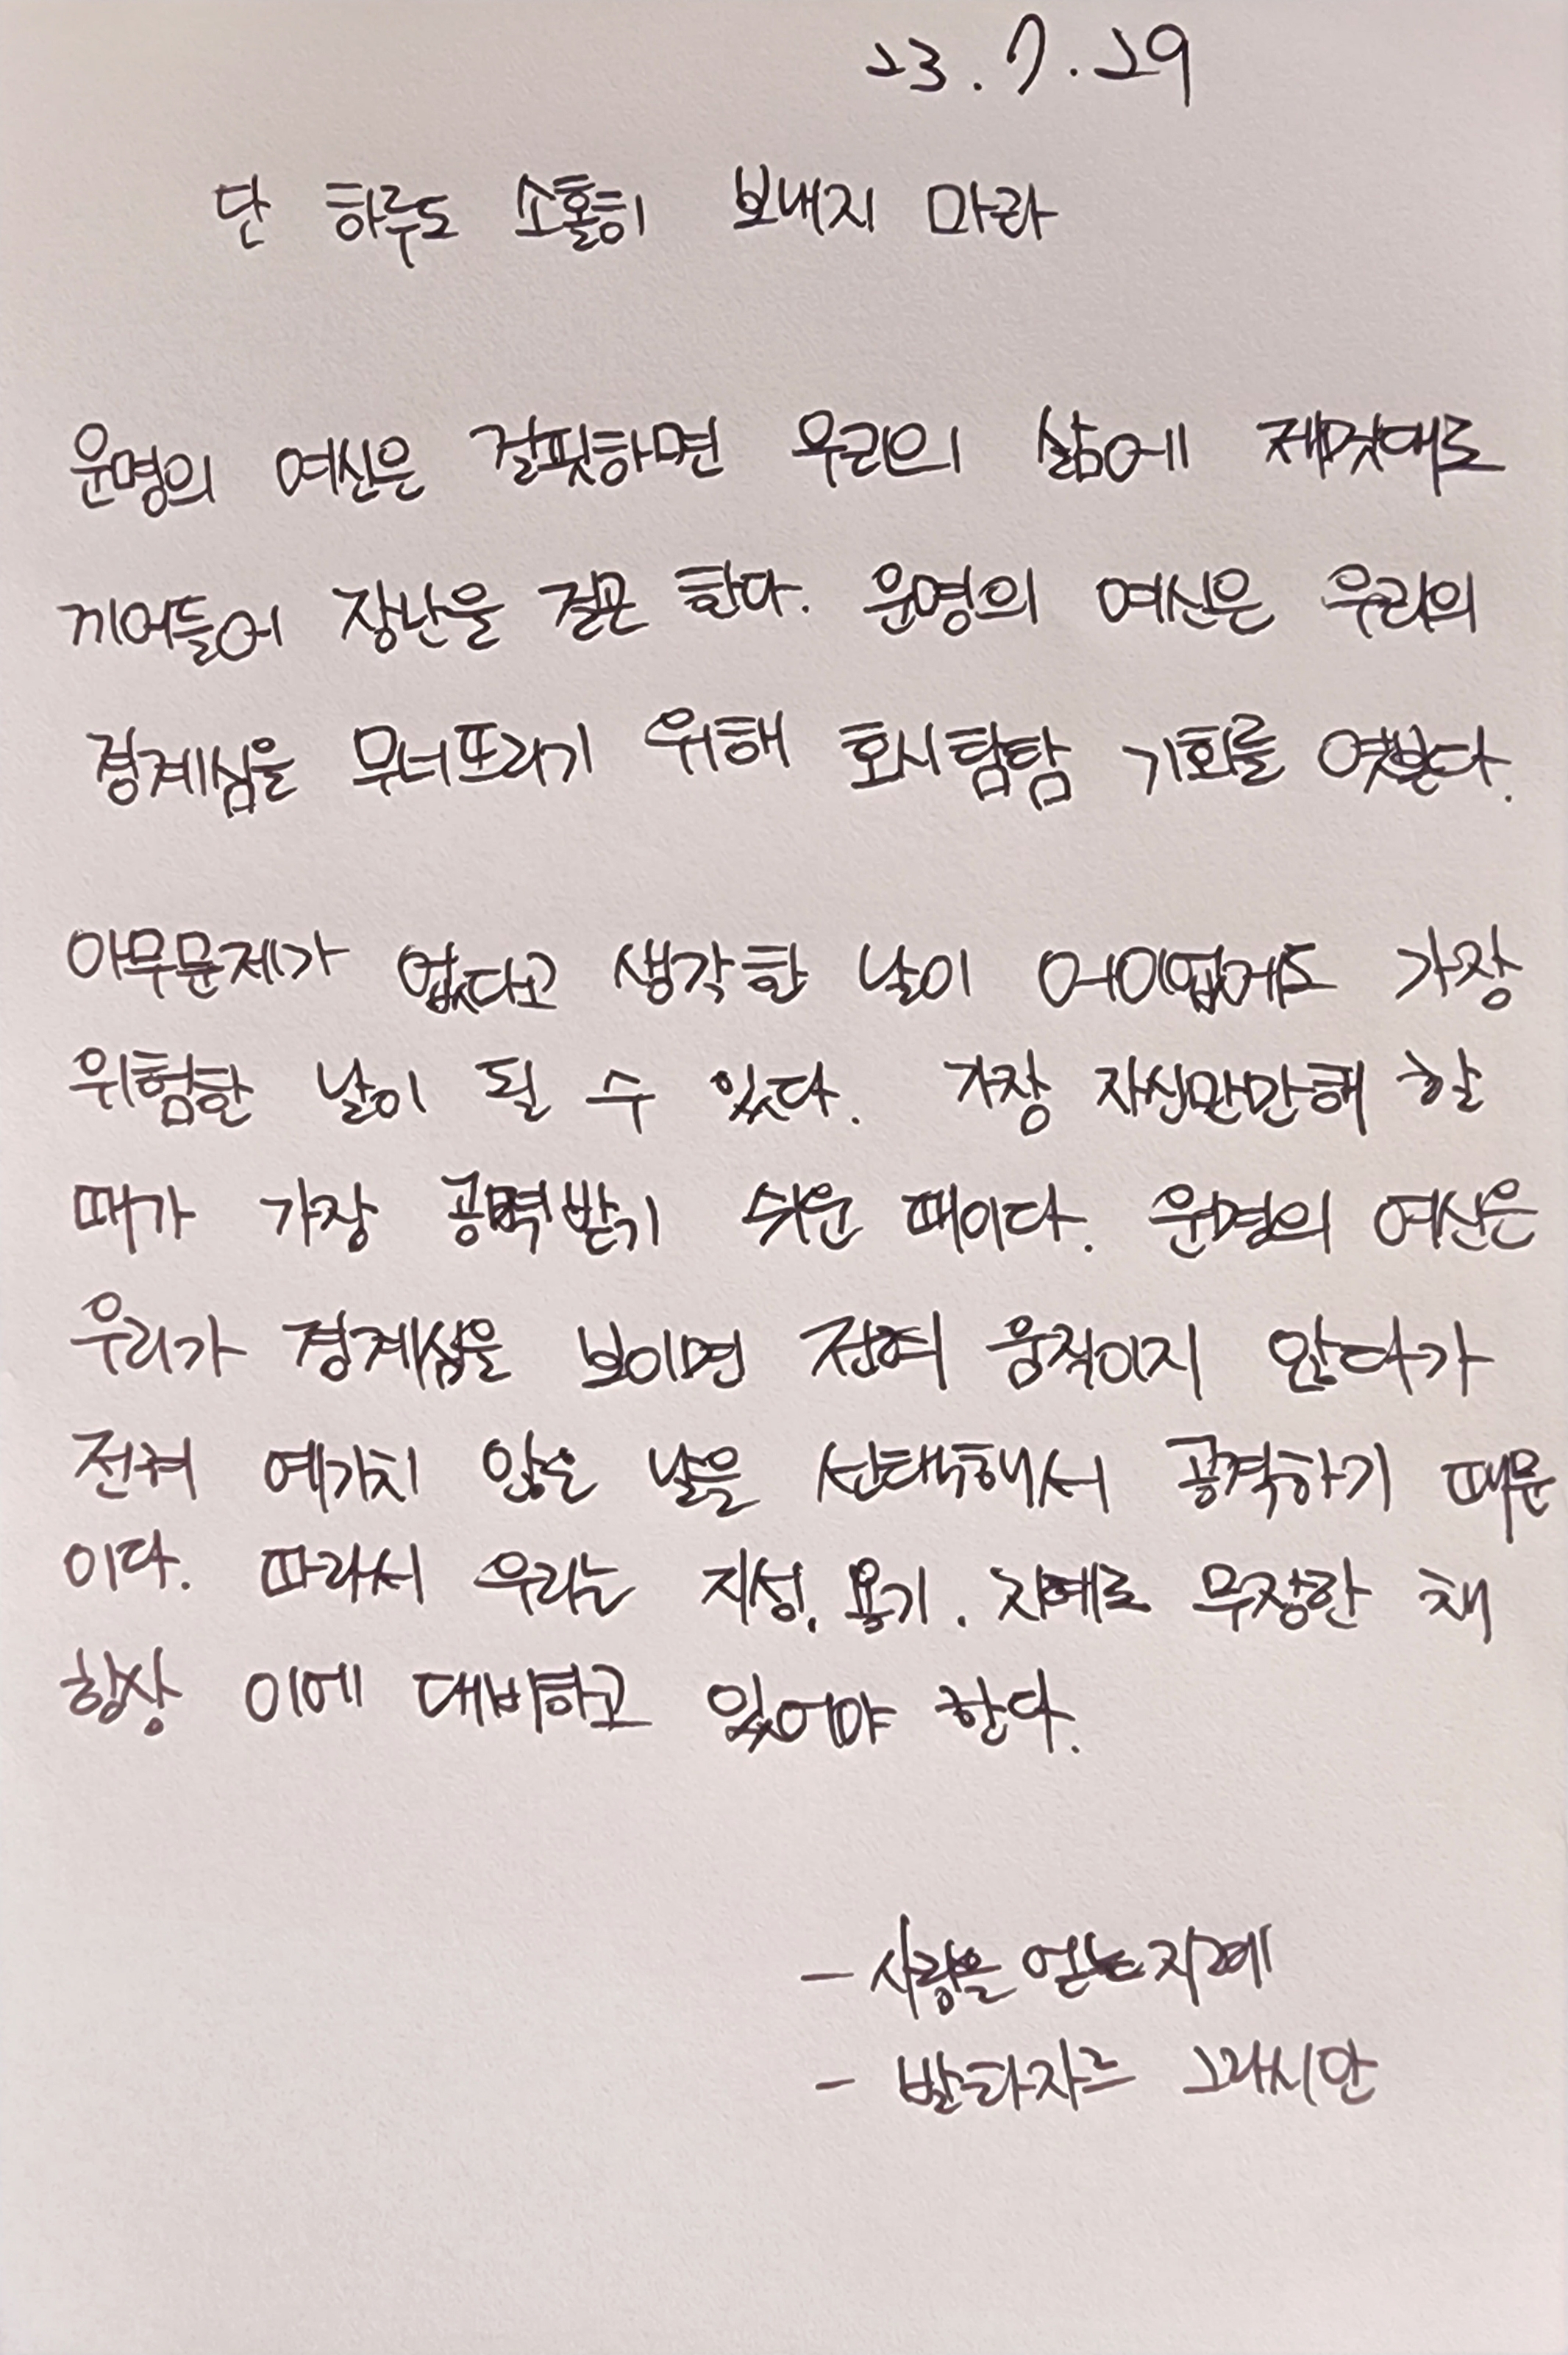 23.7.29
단 하루도 소홀히 보내지 마라
운명의 여신은 걸핏하면 우리의 삶에 제멋대로
끼어들어 장난을 걸곤 한다. 운명의 여신은 우리의
경계심을 무너뜨리기 위해 호시탐탐 기회를 엿본다.
아무문제가 없다고 생각한 날이 어이없게도 가장
위험한 날이 될 수 있다. 가장 자신만만해 할
때가 가장 공격받기 쉬운 때이다. 운명의 여신은
우리가 경계심을 보이면 전혀 움직이지 않다가
전혀 예기치 않은 날을 선택해서 공격하기 때문
이다. 따라서 우리는 지성, 용기, 지혜로 무장한 채
항상 이에 대비하고 있어야 한다.
- 사람을 얻는 지혜
- 발타자르 그라시안